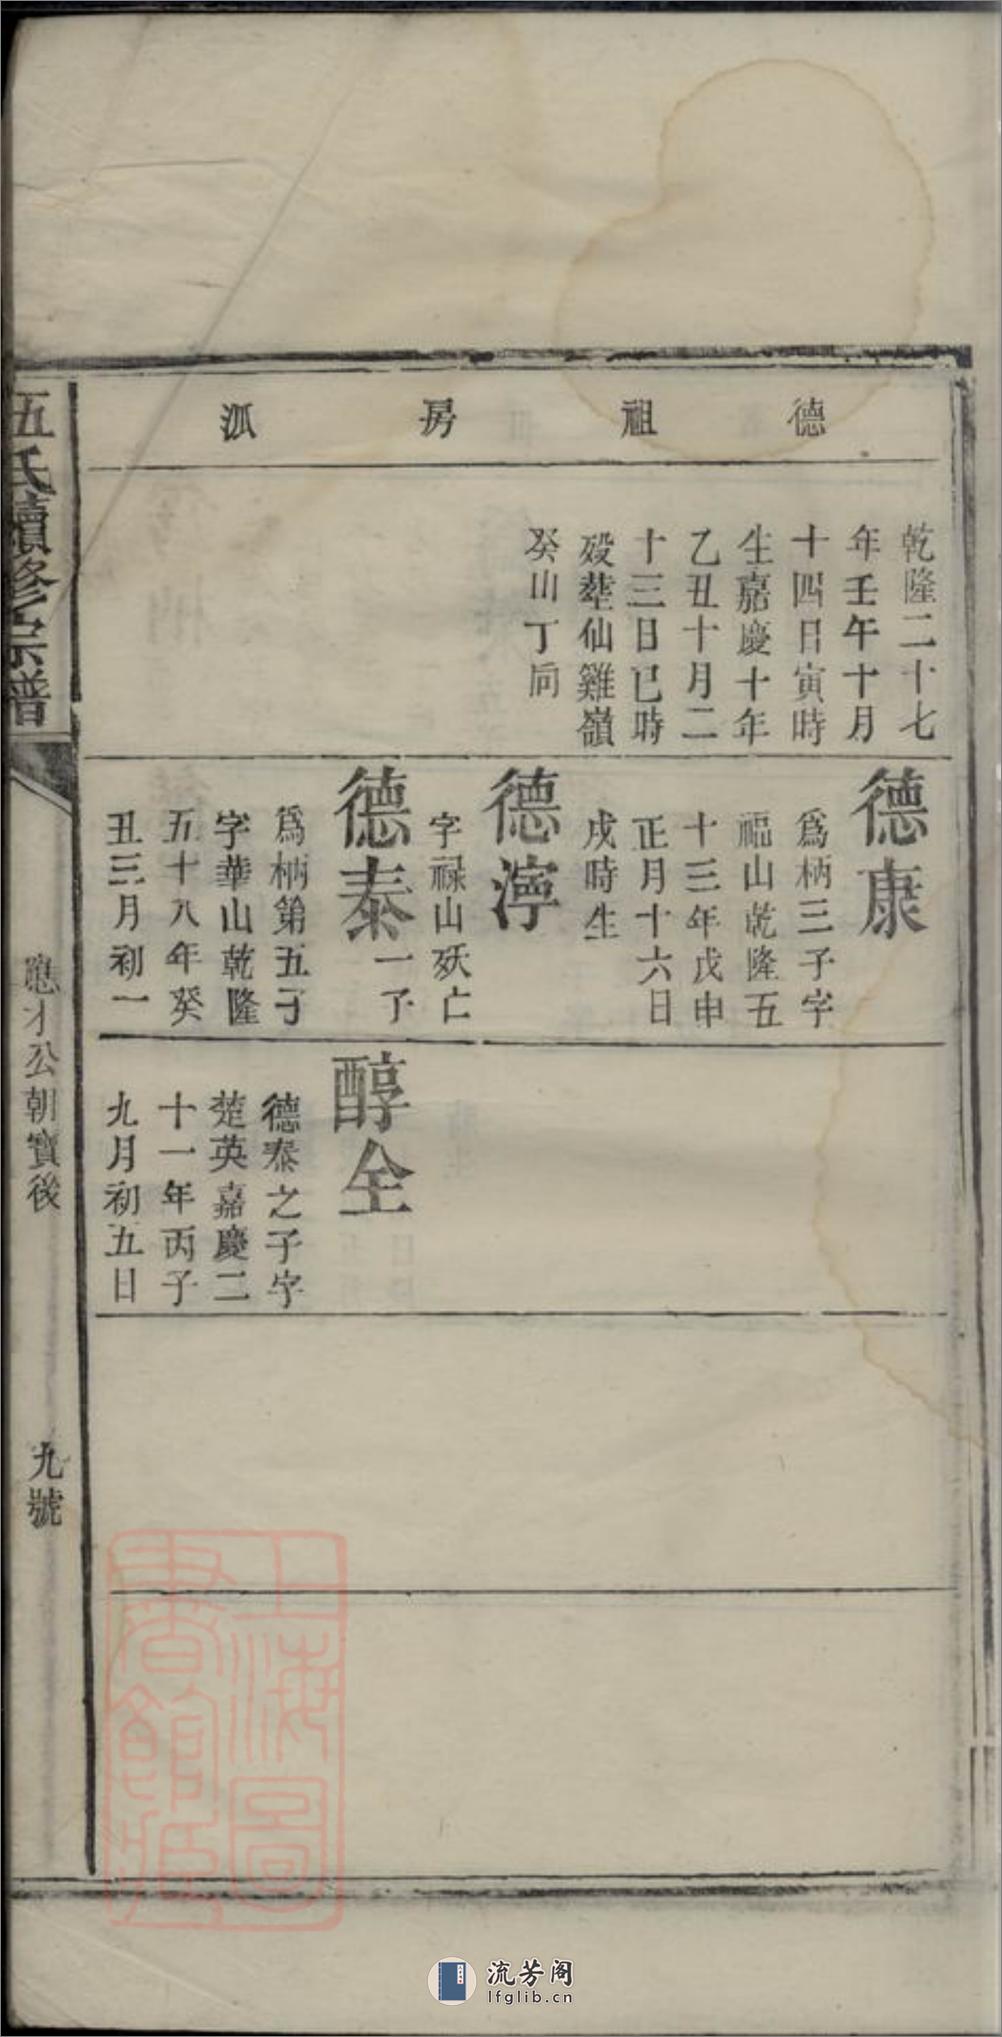 德祖房派
乾隆二十七
年壬午十月
十四日寅時
生嘉慶十年
乙丑十月二
十三日巳時
殁塟仙雞嶺
癸山丁向
德康
為柄三子字
福山乾隆五
十三年戊申
正月十六日
戌時生
德渟
字禄山殀亡
德泰一子
為柄第五子
字華山乾隆
五十八年癸
丑三月初一
醇全
德泰之子字
楚英嘉慶二
十一年丙子
九月初五日
伍氏續修宗譜
應才公朝寶後
九號
上海圖
書館藏
流芳阁
lfglib.cn